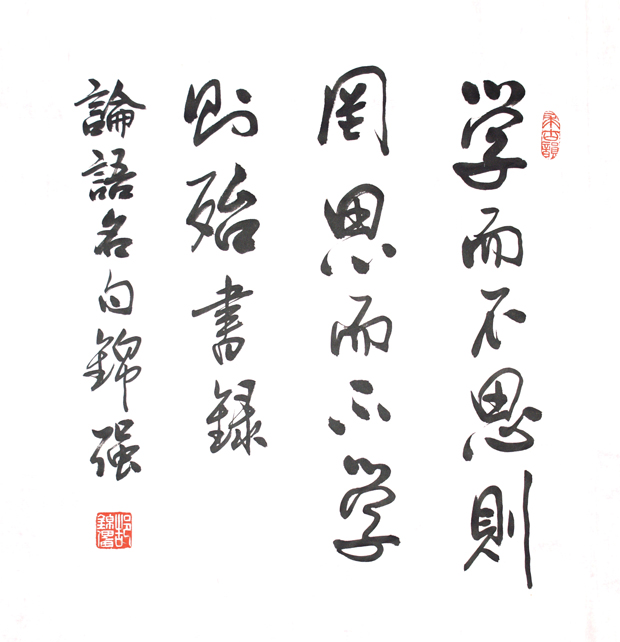 学而不思則
罔思而不学
則殆書録
論語名句錦强